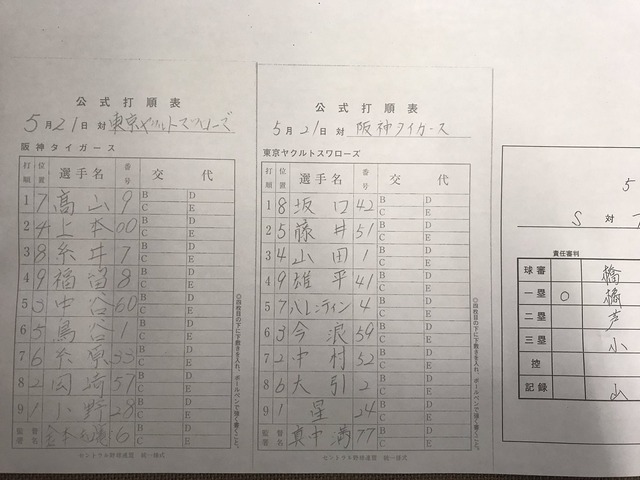 公式打順表
5月21日 対 東京ヤクルトスワローズ
阪神タイガース
打順 位置 選手名 番号 交代
1 7 高山 9 B D C E
2 4 上本 00 B D C E
3 8 糸井 7 B D C E
4 9 福留 8 B D C E
5 3 中谷 60 B D C E
6 5 鳥谷 1 B D C E
7 6 糸原 33 B D C E
8 2 岡崎 57 B D C E
9 1 小野 28 B D C E
監督 署名 金本知憲 6 B D C E
◎両枚目の下に下敷きを入れ、ボールペンで強く書くこと。
セントラル野球連盟 統一様式
公式打順表
5月21日 対 阪神タイガース
東京ヤクルトスワローズ
打順 位置 選手名 番号 交代
1 8 坂口 42 B D C E
2 5 藤井 51 B D C E
3 4 山田 1 B D C E
4 9 雄平 41 B D C E
5 7 バレンティン 4 B D C E
6 3 今浪 59 B D C E
7 2 中村 52 B D C E
8 6 大引 2 B D C E
9 1 星 24 B D C E
監督 署名 真中満 77 B D C E
セントラル野球連盟 統一様式
5
S 対 T
責任審判
球審 橋
一塁 ○ 橘
二塁 芦
三塁 小
控
記録 山